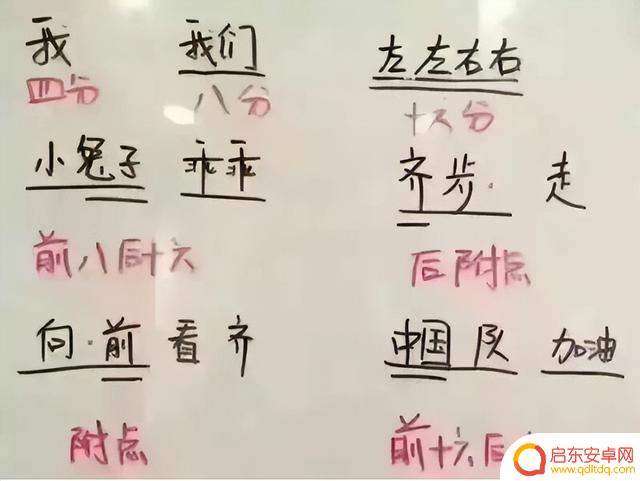 我 我们 左左右右
四分 八分 十六分
小兔子 乖乖 齐步· 走
前八后十六 后附点
向·前看齐 中国队 加油
附点 前十六后
启东安卓网
www.qdltdq.com